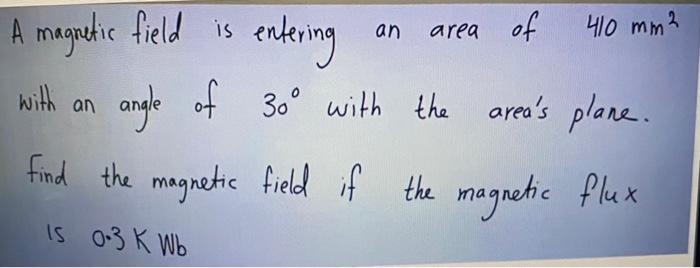 A magnetic field is entering an area of 410 mm²
with an angle of 30° with the area's plane.
find the magnetic field if the magnetic flux
is 0.3 K Wb